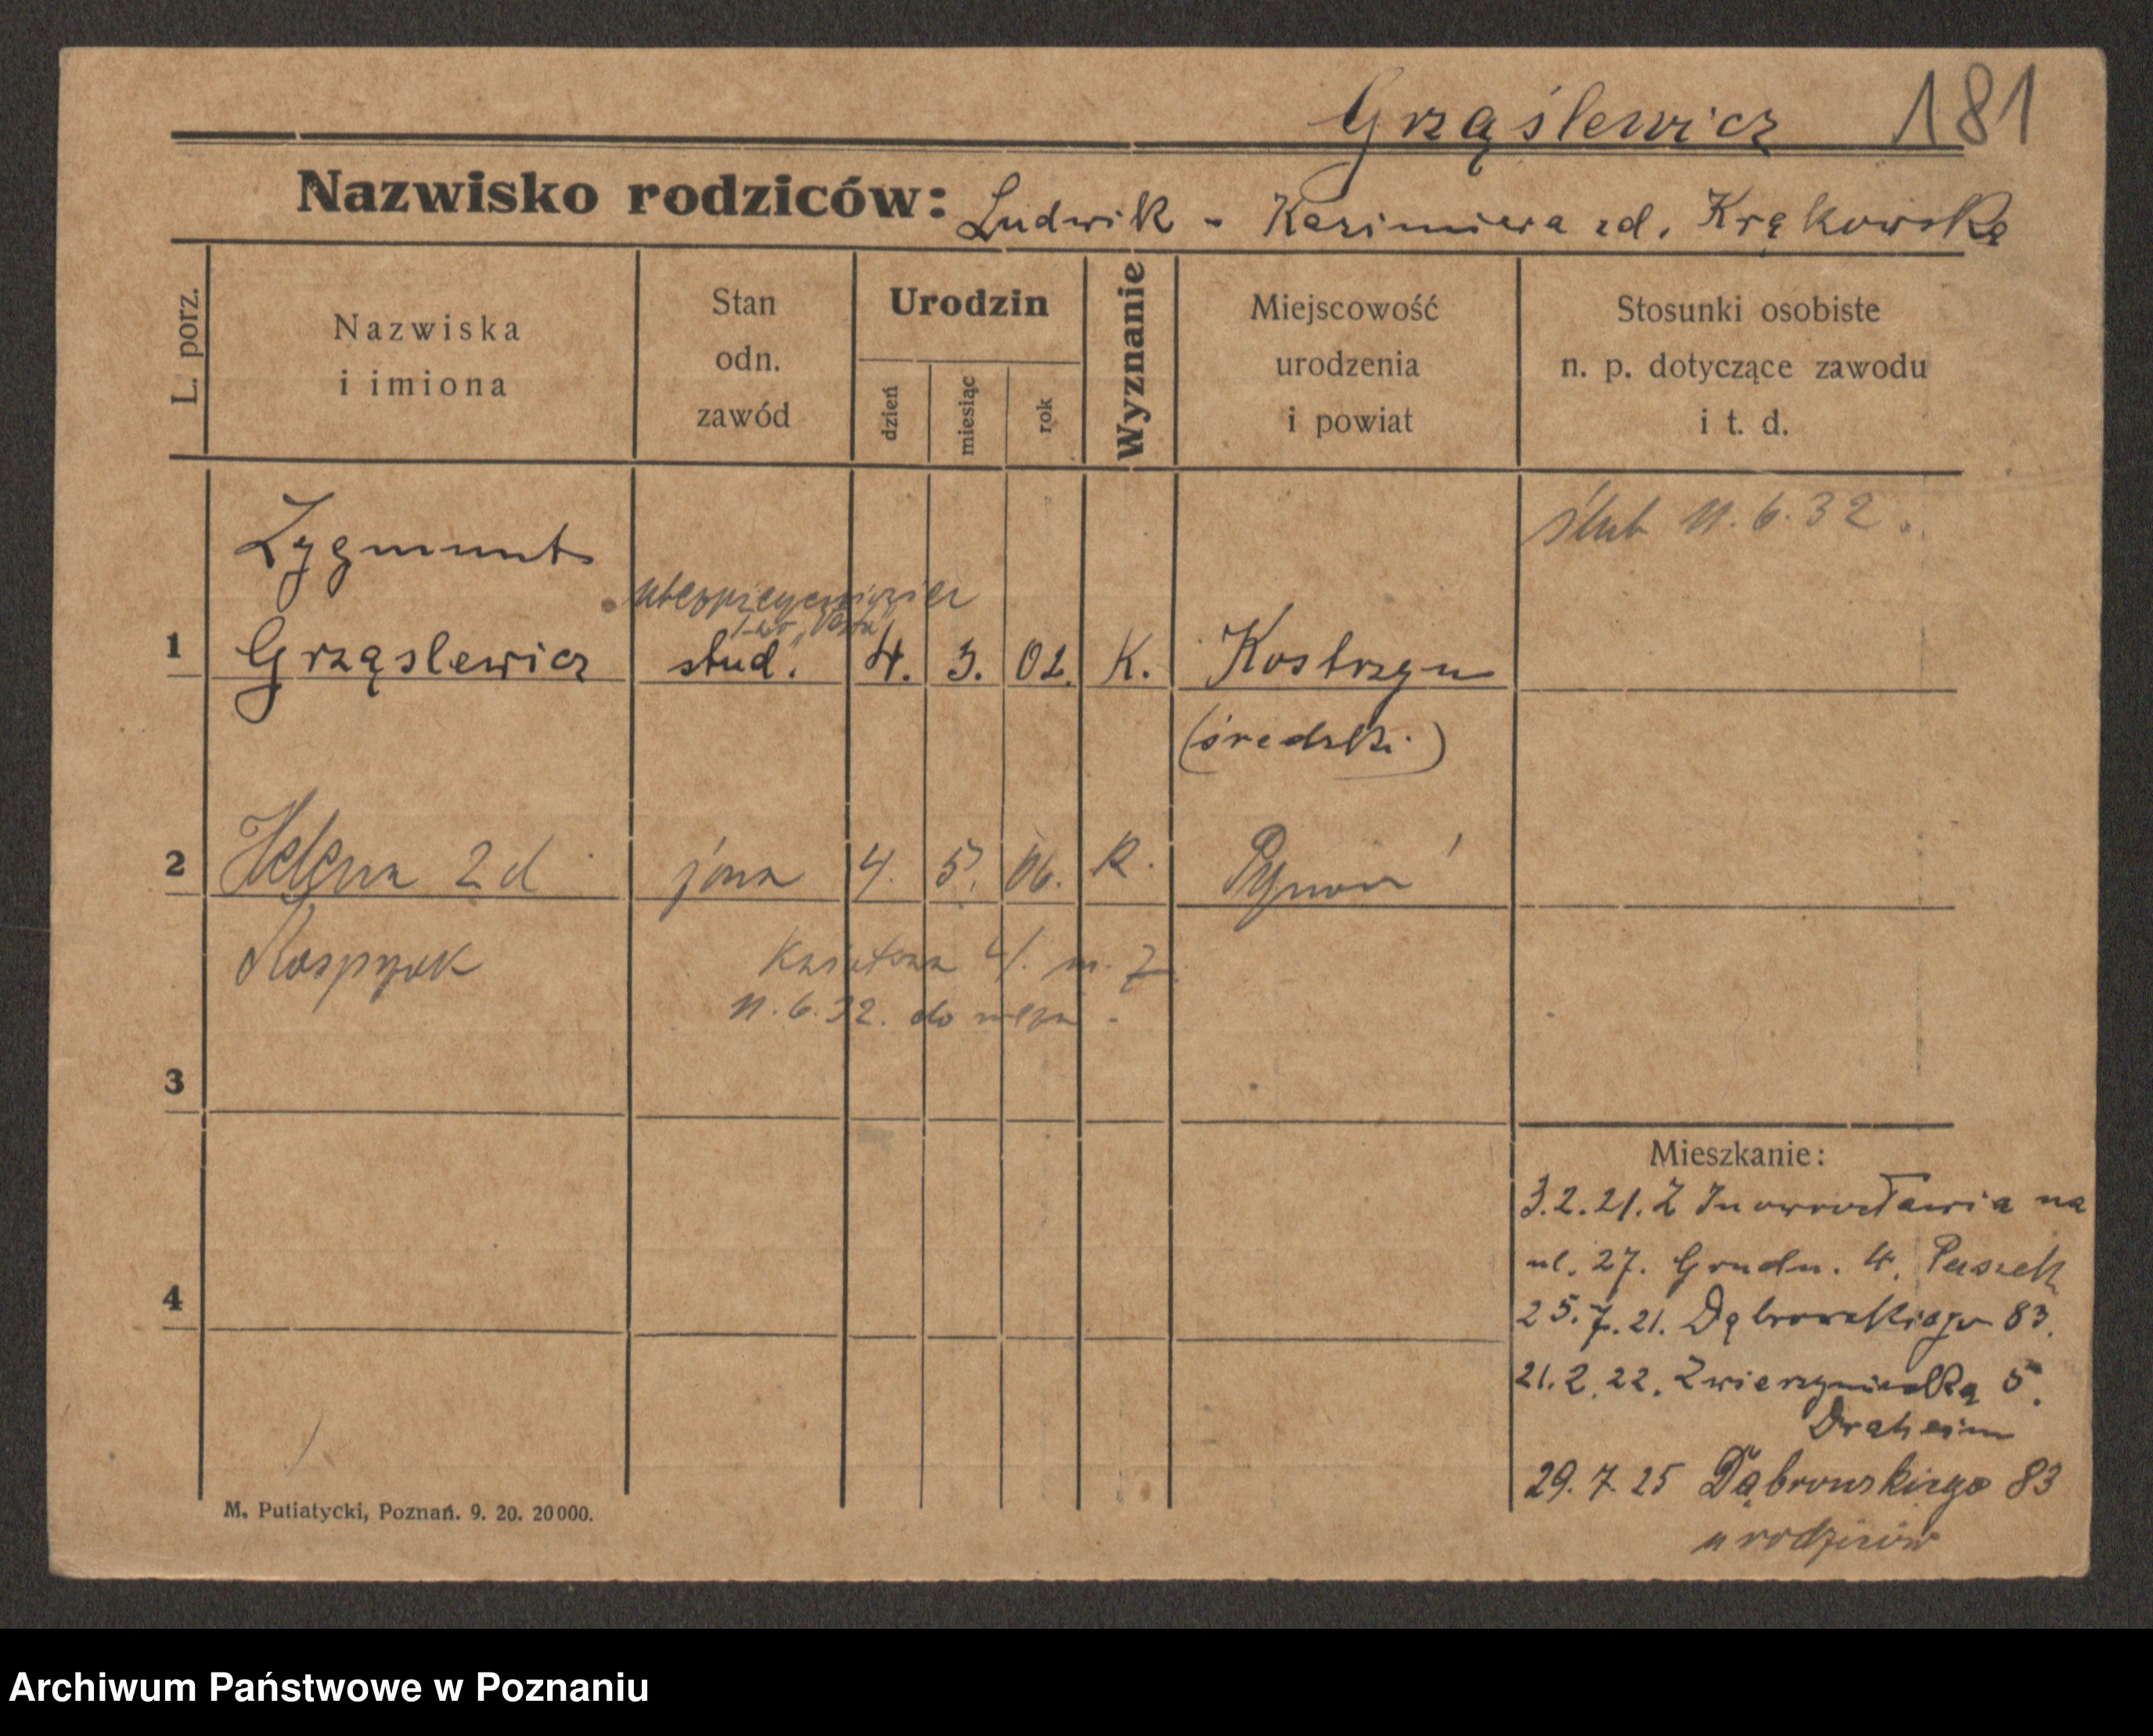 Grząślewicz 181
Nazwisko rodziców: Ludwik - Kazimiera zd. Krąkowska
L. porz.
Nazwiska
i imiona
Stan
odn.
zawód
Urodzin
dzień
miesiąc
rok
Wyznanie
Miejscowość
urodzenia
i powiat
Stosunki osobiste
n. p. dotyczące zawodu
i t. d.
ślub 11.6.32.
Zygmunt
1 Grząslewicz stud. 4. 3. 02. K. Kostrzyn
(średzki)
2 Helena zd żona 4. 5. 06. K. Poznań
4. m. 7
11.6.32. do męża -
3
4
Mieszkanie:
3.2.21. Z Inowrocławia na
ul. 27. Grudn. 4. Paszek
25.7.21. Dąbrowskiego 83.
21.2.22. Zwierzyniecka 5.
Draheim
29.7.25 Dąbrowskiego 83
u rodziców
M. Putiatycki, Poznań. 9. 20. 20000.
Archiwum Państwowe w Poznaniu